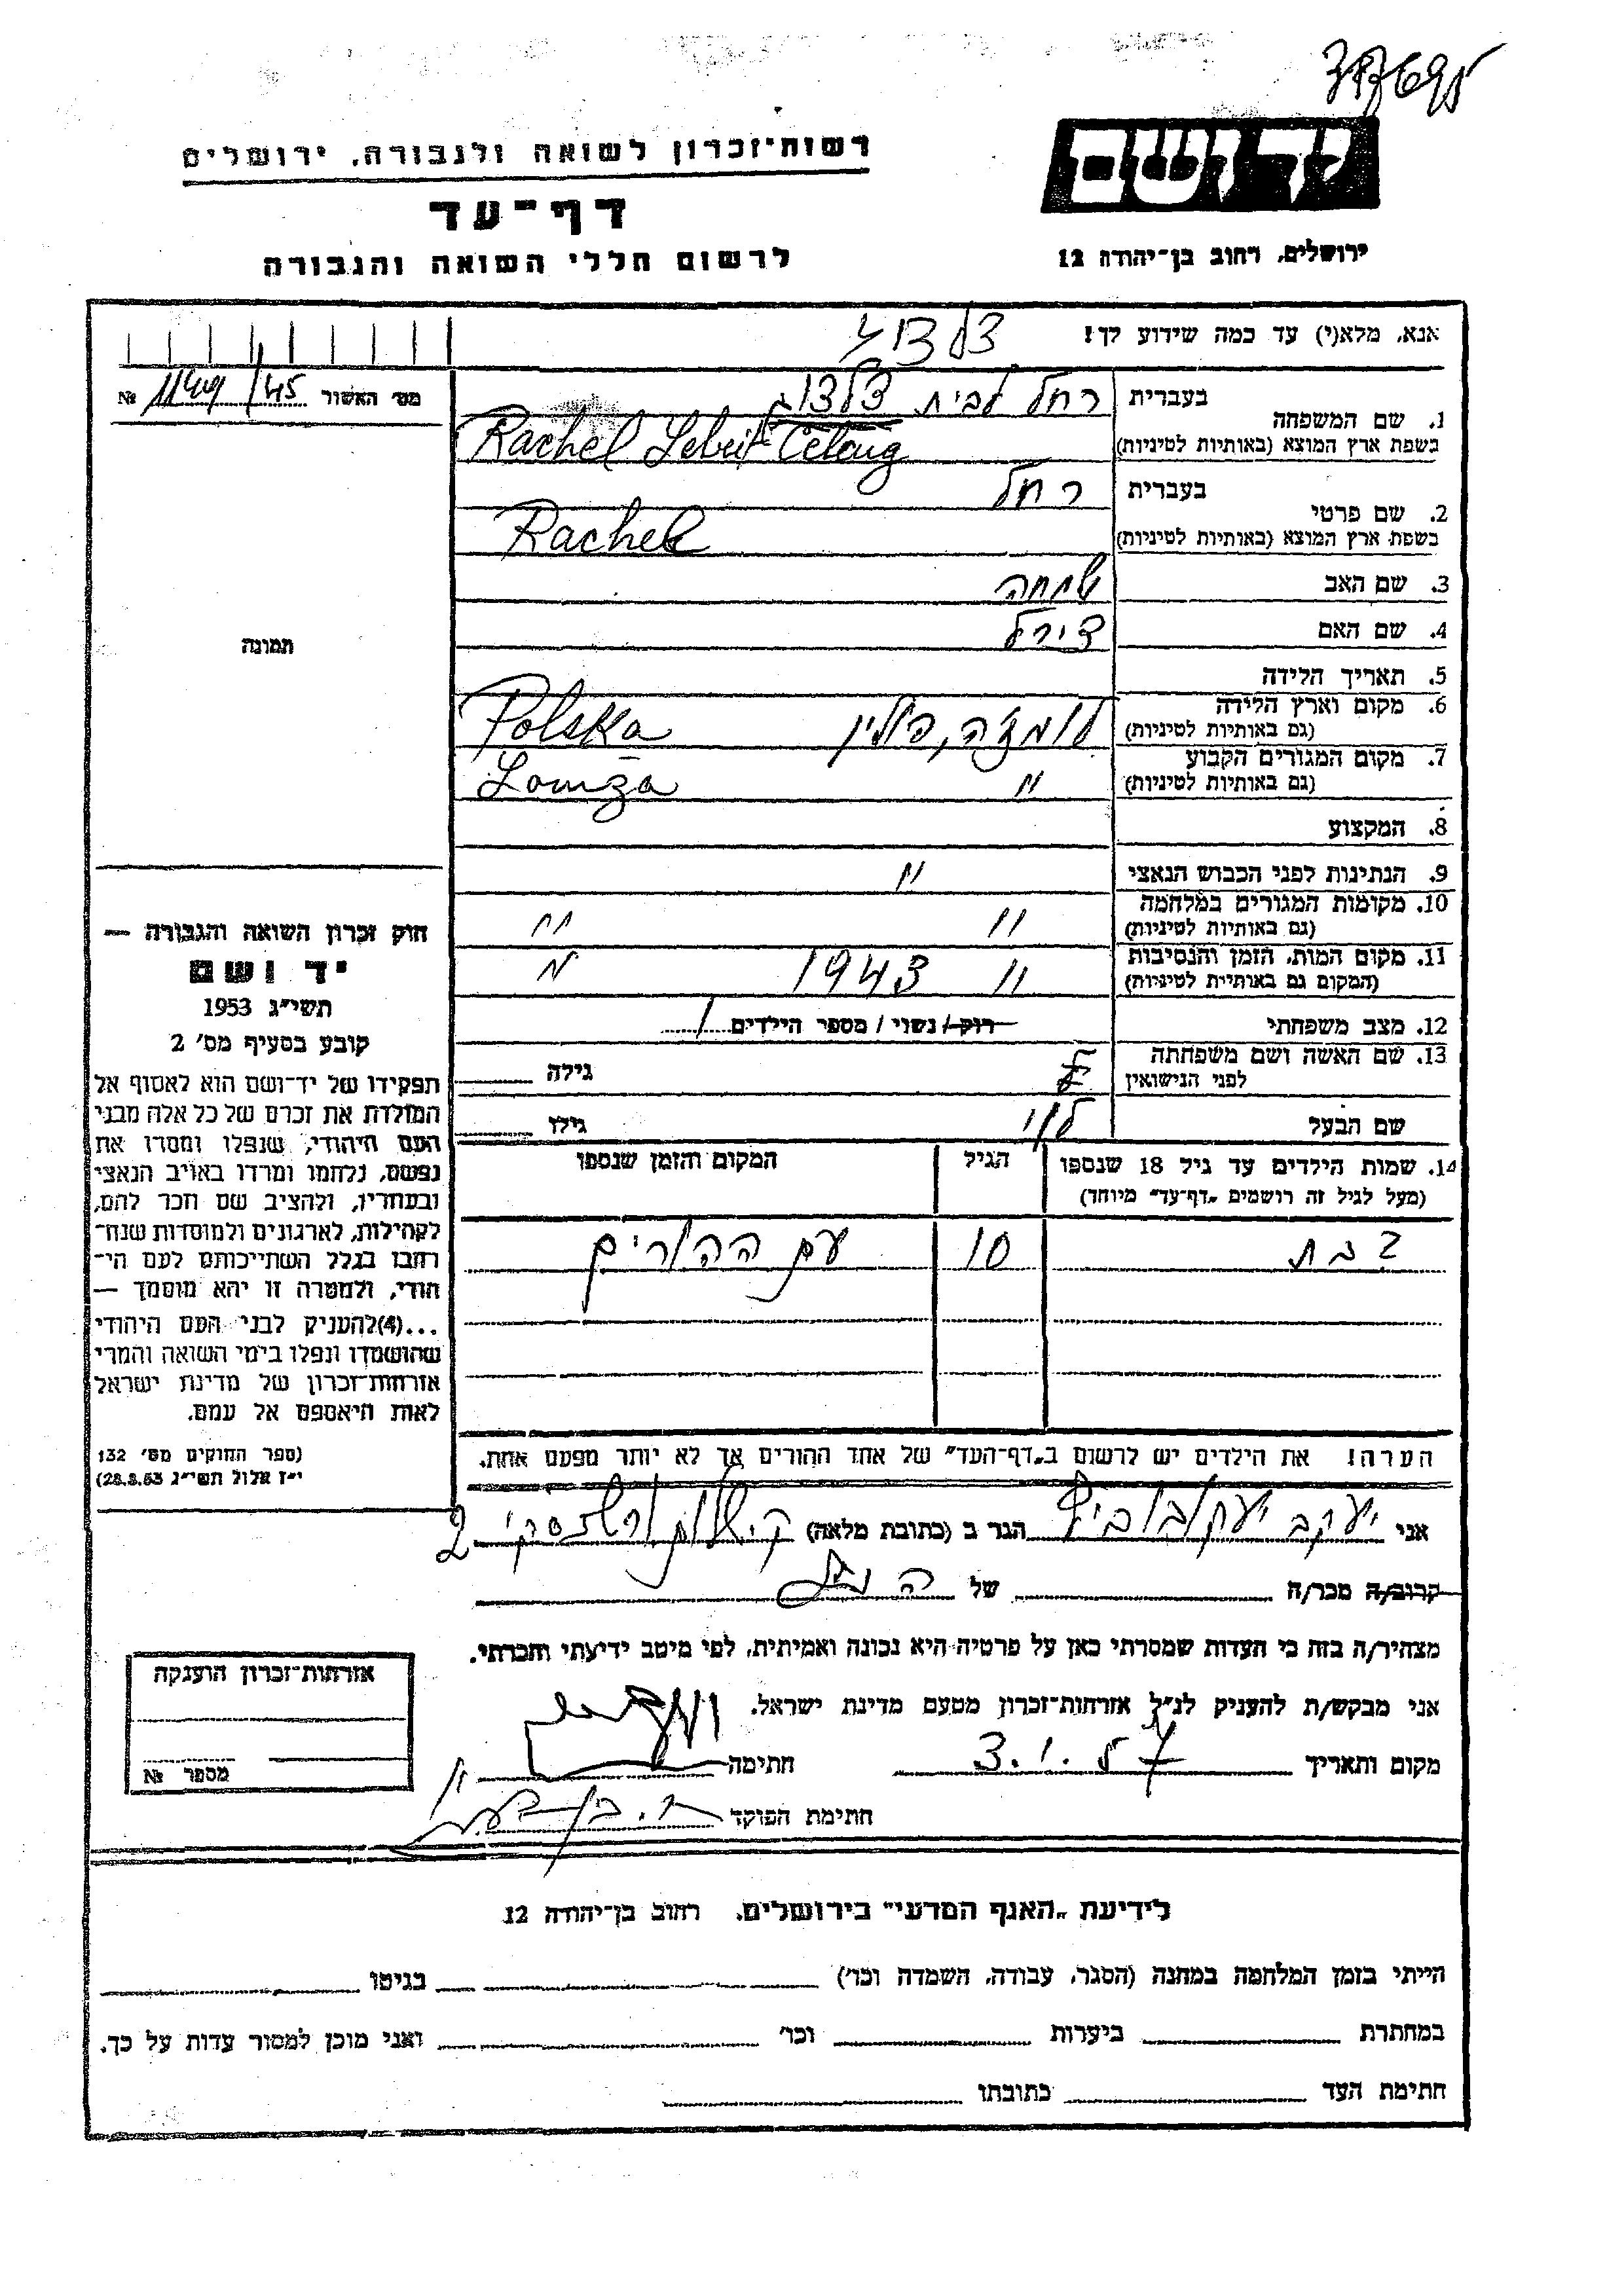 רשות־זכרון לשואה ולגבורה, ירושלים
דף־עד
לרשום חללי השואה והגבורה
יד ושם
ירושלים, רחוב בן־יהודה 12
אנא, מלא(י) עד כמה שידוע לך!
מס׳ האשור 45 / №
1. שם המשפחה
בעברית רחל לבית
בשפת ארץ המוצא (באותיות לטיניות) Rachel Lebeit
2. שם פרטי
בעברית רחל
בשפת ארץ המוצא (באותיות לטיניות) Rachel
3. שם האב שמחה
4. שם האם
5. תאריך הלידה
6. מקום וארץ הלידה
(גם באותיות לטיניות) לומז׳ה, פולין Polska
7. מקום המגורים הקבוע
(גם באותיות לטיניות) " Lomza
8. המקצוע
9. הנתינות לפני הכבוש הנאצי "
10. מקומות המגורים במלחמה
(גם באותיות לטיניות) " "
11. מקום המות, הזמן והנסיבות
(המקום גם באותיות לטיניות) " 1943 "
12. מצב משפחתי רוק / נשוי / מספר הילדים 1
13. שם האשה ושם משפחתה
לפני הנישואין גילה
שם הבעל לוי גילו
14. שמות הילדים עד גיל 18 שנספו
(מעל לגיל זה רושמים „דף־עד״ מיוחד)
הגיל
המקום והזמן שנספו
בת 10 עם ההורים
הערה! את הילדים יש לרשום ב„דף־העד״ של אחד ההורים אך לא יותר מפעם אחת.
תמונה
חוק זכרון השואה והגבורה —
יד ושם
תשי״ג 1953
קובע בסעיף מס׳ 2
תפקידו של יד־ושם הוא לאסוף אל
המולדת את זכרם של כל אלה מבני
העם היהודי, שנפלו ומסרו את
נפשם, נלחמו ומרדו באויב הנאצי
ובעוזריו, ולהציב שם וזכר להם,
לקהילות, לארגונים ולמוסדות שנח־
רבו בגלל השתייכותם לעם הי־
הודי, ולמטרה זו יהא מוסמך —
...(4)להעניק לבני העם היהודי
שהושמדו ונפלו בימי השואה והמרי
אזרחות־זכרון של מדינת ישראל
לאות היאספם אל עמם.
(ספר החוקים מס׳ 132
י״ז אלול תשי״ג 28.8.53)
אני יעקב יעקובוביץ הגר ב (כתובת מלאה) 2
קרוב/ה מכר/ה של
מצהיר/ה בזה כי העדות שמסרתי כאן על פרטיה היא נכונה ואמיתית, לפי מיטב ידיעתי והכרתי.
אני מבקש/ת להעניק לנ״ל אזרחות־זכרון מטעם מדינת ישראל.
מקום ותאריך 3.1.57 חתימה
חתימת הפוקד
אזרחות־זכרון הוענקה
מספר №
לידיעת „האגף המדעי״ בירושלים, רחוב בן־יהודה 12
הייתי בזמן המלחמה במחנה (הסגר, עבודה, השמדה וכו׳) בגיטו
במחתרת ביערות וכו׳ ואני מוכן למסור עדות על כך.
חתימת העד כתובתו